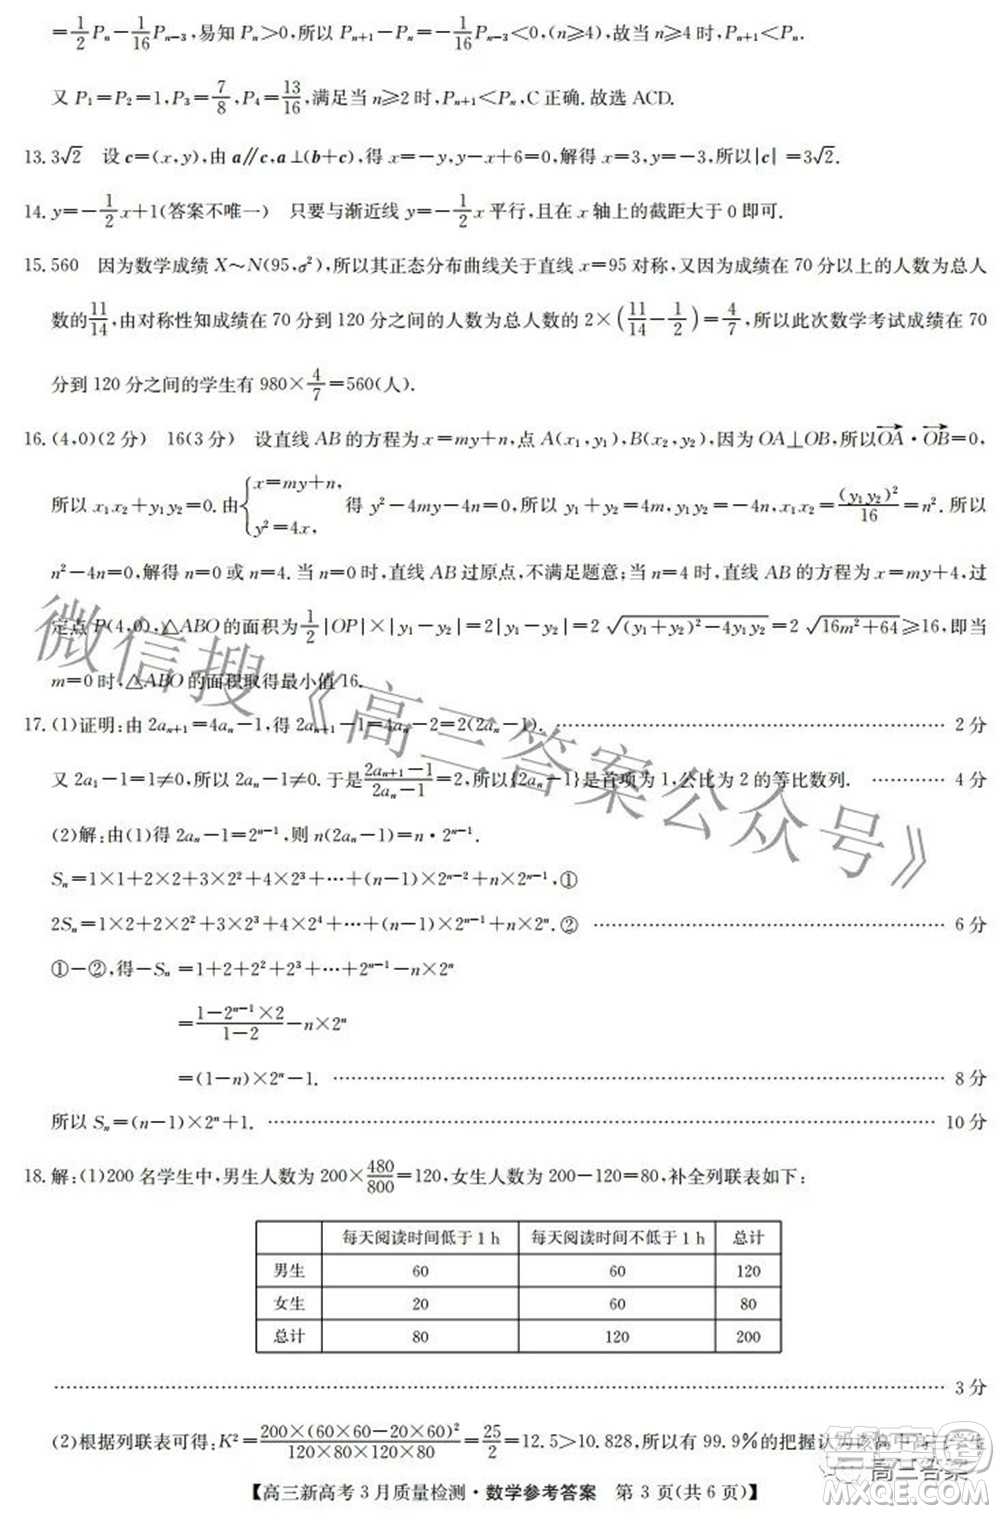 =1/2 Pₙ−1/16 Pₙ₋₃,易知 Pₙ>0,所以 Pₙ₊₁−Pₙ=−1/16 Pₙ₋₃<0,(n≥4),故当 n≥4 时,Pₙ₊₁<Pₙ.
又 P₁=P₂=1,P₃=7/8,P₄=13/16,满足当 n≥2 时,Pₙ₊₁<Pₙ,C 正确.故选 ACD.
13. 3√2 设 c=(x,y),由 a∥c,a⊥(b+c),得 x=−y,y−x+6=0,解得 x=3,y=−3,所以|c|=3√2.
14. y=−1/2 x+1(答案不唯一) 只要与渐近线 y=−1/2 x 平行,且在 x 轴上的截距大于 0 即可.
15. 560 因为数学成绩 X~N(95,σ²),所以其正态分布曲线关于直线 x=95 对称,又因为成绩在 70 分以上的人数为总人
数的 11/14,由对称性知成绩在 70 分到 120 分之间的人数为总人数的 2×(11/14−1/2)=4/7,所以此次数学考试成绩在 70
分到 120 分之间的学生有 980×4/7=560(人).
16. (4,0)(2 分) 16(3 分) 设直线 AB 的方程为 x=my+n,点 A(x₁,y₁),B(x₂,y₂),因为 OA⊥OB,所以 →OA·→OB=0,
所以 x₁x₂+y₁y₂=0.由{x=my+n, y²=4x, 得 y²−4my−4n=0,所以 y₁+y₂=4m,y₁y₂=−4n,x₁x₂=(y₁y₂)²/16=n².所以
n²−4n=0,解得 n=0 或 n=4.当 n=0 时,直线 AB 过原点,不满足题意;当 n=4 时,直线 AB 的方程为 x=my+4,过
定点 P(4,0),△ABO 的面积为 1/2|OP|×|y₁−y₂|=2|y₁−y₂|=2√((y₁+y₂)²−4y₁y₂)=2√(16m²+64)≥16,即当
m=0 时,△ABO 的面积取得最小值 16.
17. (1)证明:由 2aₙ₊₁=4aₙ−1,得 2aₙ₊₁−1=4aₙ−2=2(2aₙ−1). …… 2 分
又 2a₁−1=1≠0,所以 2aₙ−1≠0.于是 (2aₙ₊₁−1)/(2aₙ−1)=2,所以{2aₙ−1}是首项为 1,公比为 2 的等比数列. …… 4 分
(2)解:由(1)得 2aₙ−1=2ⁿ⁻¹,则 n(2aₙ−1)=n·2ⁿ⁻¹.
Sₙ=1×1+2×2+3×2²+4×2³+⋯+(n−1)×2ⁿ⁻²+n×2ⁿ⁻¹,①
2Sₙ=1×2+2×2²+3×2³+4×2⁴+⋯+(n−1)×2ⁿ⁻¹+n×2ⁿ.② …… 6 分
①−②,得−Sₙ=1+2+2²+2³+⋯+2ⁿ⁻¹−n×2ⁿ
=(1−2ⁿ⁻¹×2)/(1−2)−n×2ⁿ
=(1−n)×2ⁿ−1. …… 8 分
所以 Sₙ=(n−1)×2ⁿ+1. …… 10 分
18. 解:(1)200 名学生中,男生人数为 200×480/800=120,女生人数为 200−120=80,补全列联表如下:
每天阅读时间低于 1 h 每天阅读时间不低于 1 h 总计
男生 60 60 120
女生 20 60 80
总计 80 120 200
…… 3 分
(2)根据列联表可得:K²=200×(60×60−20×60)²/(120×80×120×80)=25/2=12.5>10.828,所以有 99.9%的把握认为该高中高三学生
【高三新高考 3 月质量检测·数学参考答案 第 3 页(共 6 页)】
微信搜《高三答案公众号》
高三答案